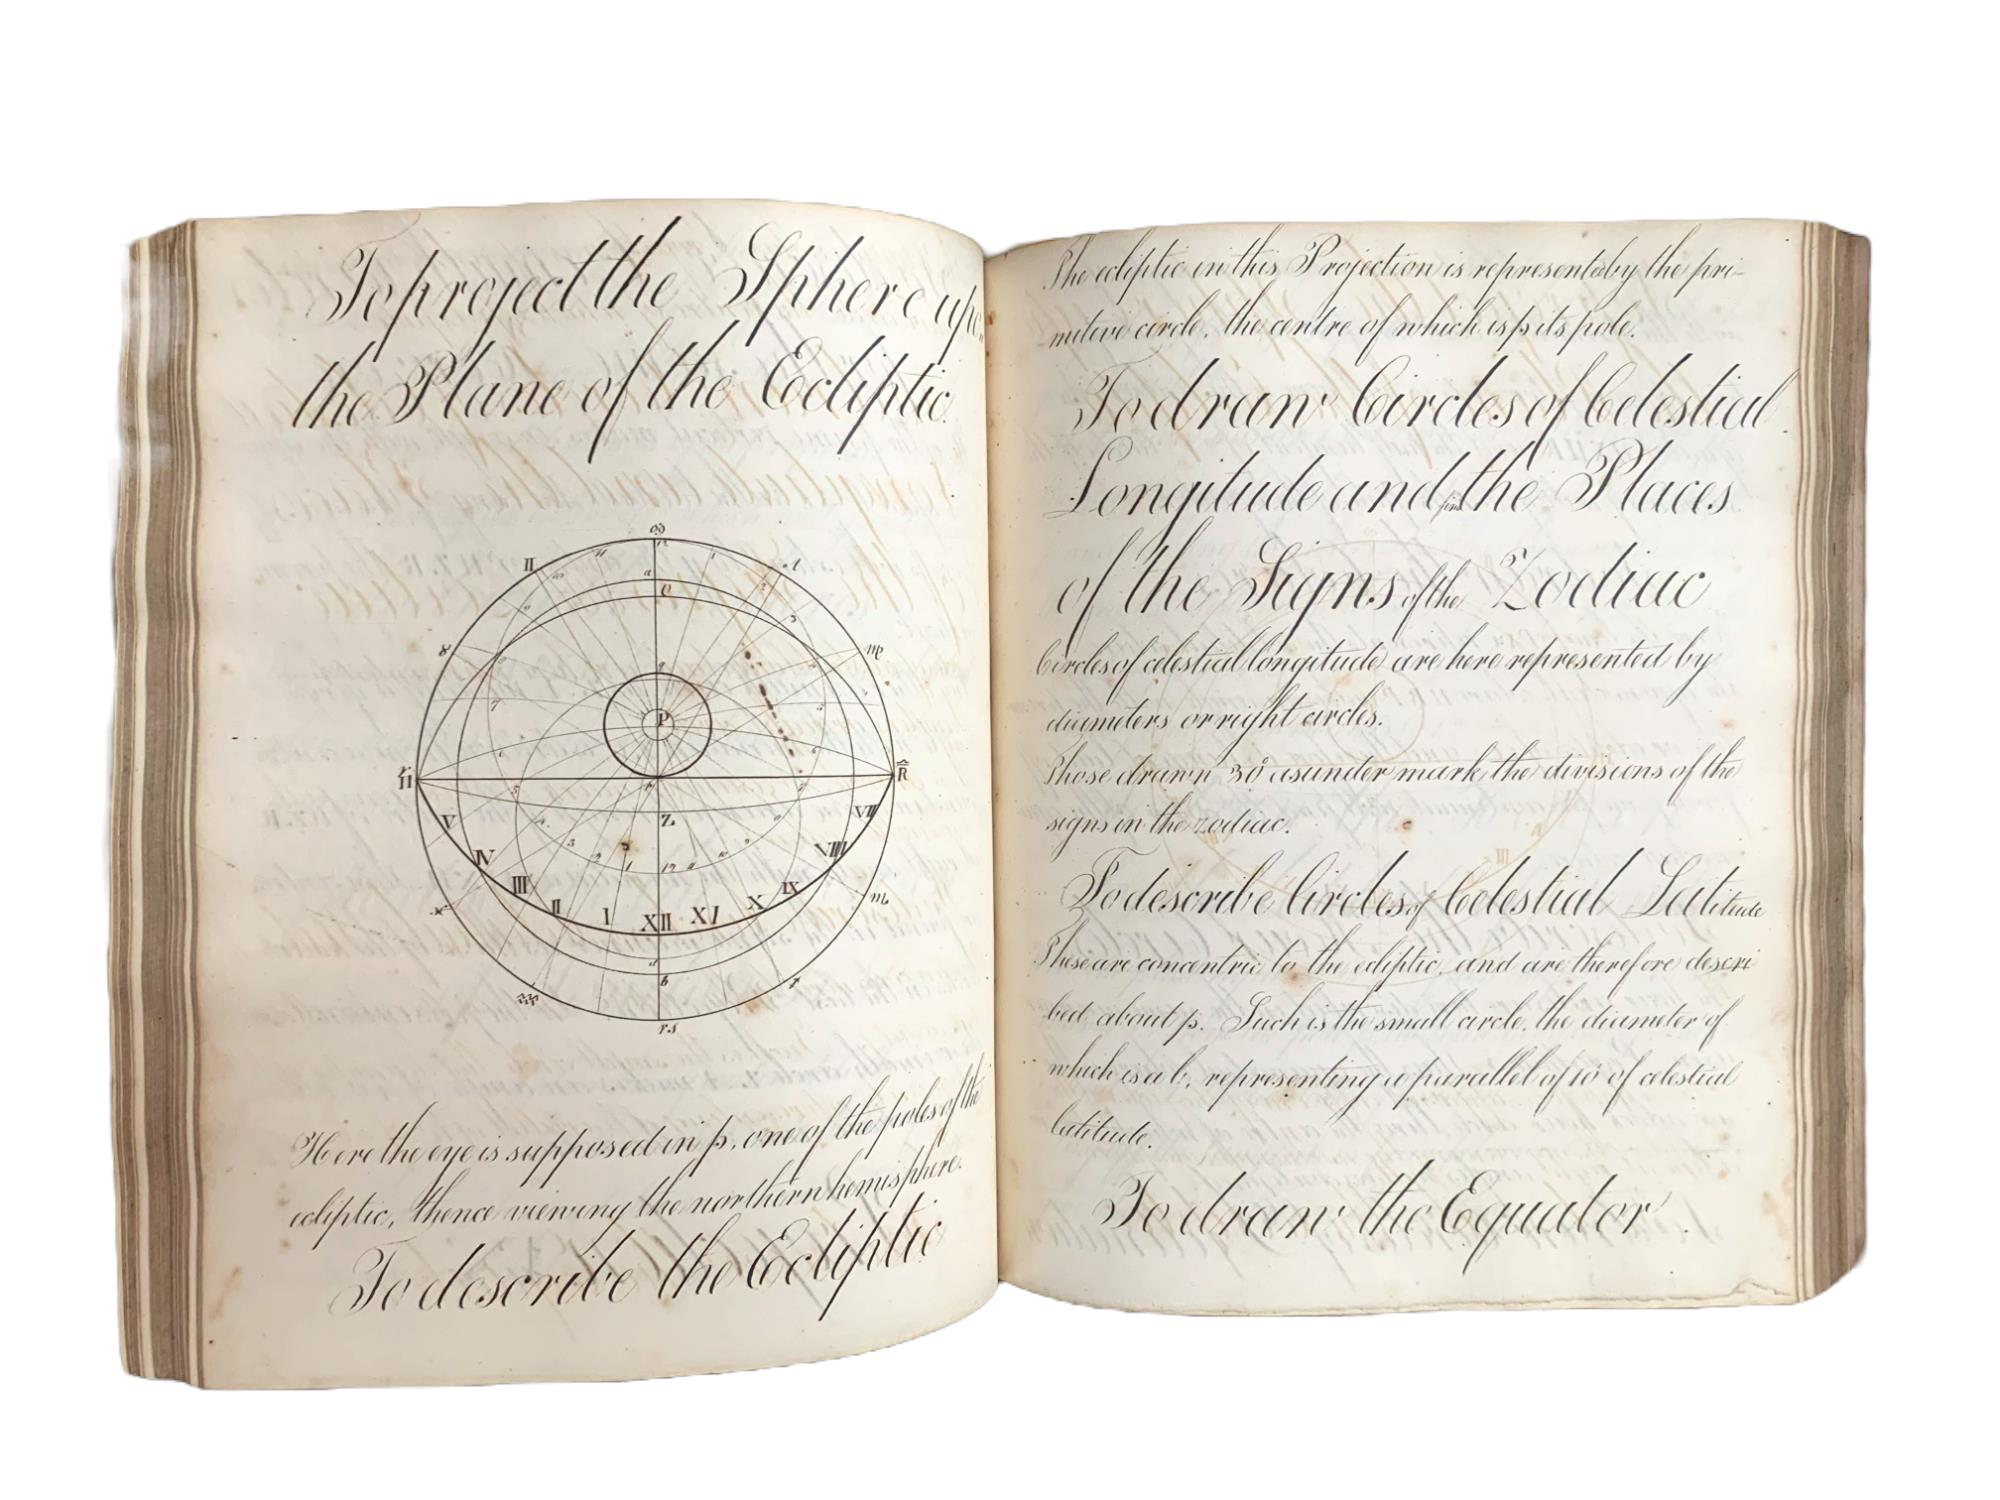 To project the Sphere upon
the Plane of the Ecliptic.
♋
12
II
11
1
♌
10
a
2
Q
9
3
♉
♍
q
7
5
P
6
♈
♎
H
R
p
5
V
Z
VII
4
IV
VIII
3
2
1
12
11
10
9
III
IX
II
X
I
XII
XI
♓
♏
d
b
♒
♐
♑
Here the eye is supposed in p, one of the poles of the
ecliptic, thence viewing the northern hemisphere.
To describe the Ecliptic
The ecliptic in this Projection is represented by the pri-
mitive circle, the centre of which is p its pole.
To draw Circles of Celestial
Longitude and find the Places
of the Signs of the Zodiac
Circles of celestial longitude are here represented by
diameters or right circles.
Those drawn 30° asunder mark the divisions of the
signs in the zodiac.
To describe Circles of Celestial Latitude
These are concentric to the ecliptic, and are therefore descri
bed about p. Such is the small circle, the diameter of
which is a b, representing a parallel of 10° of celestial
latitude.
To draw the Equator.